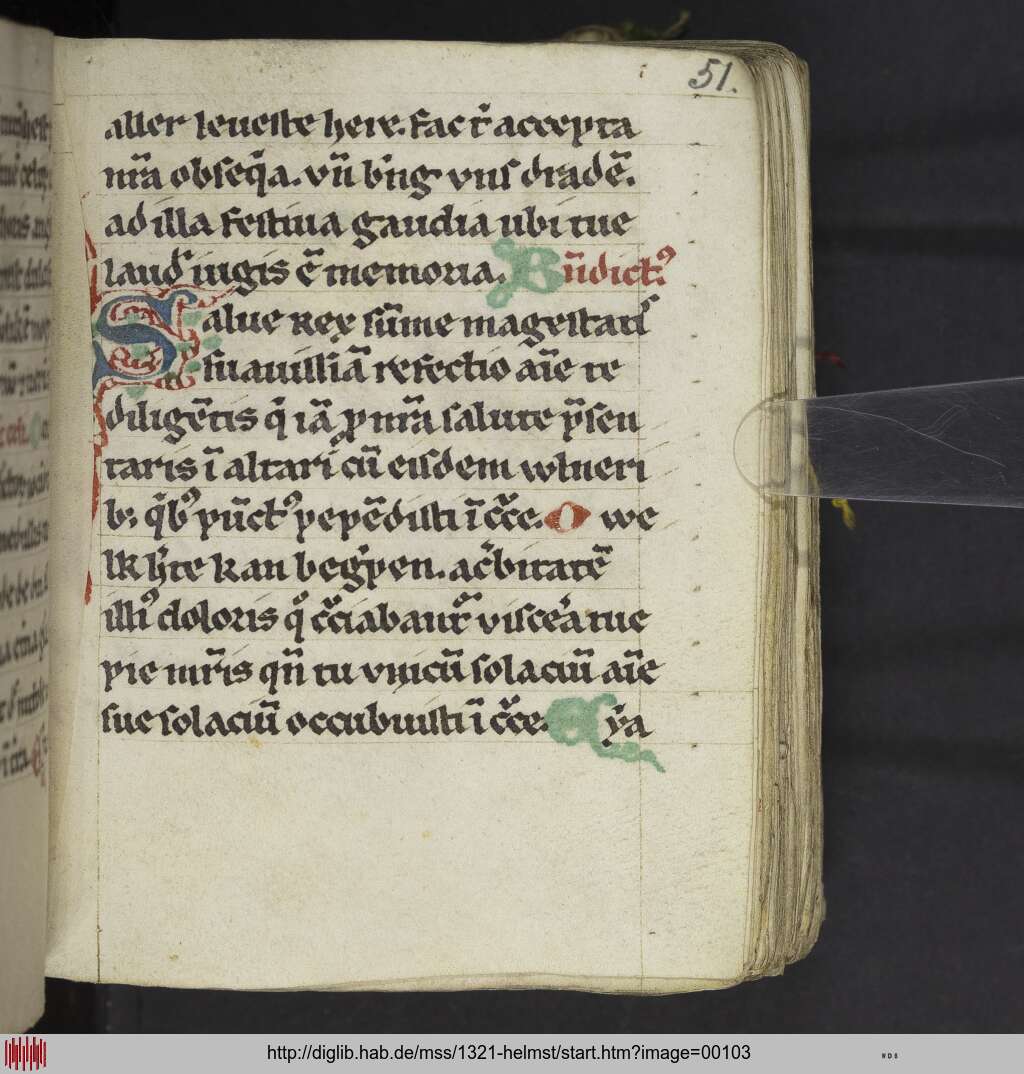 51.
aller leueste here. fac t̄ accepta
nr̄a obseq̄a. vn̄ br̄ng vns dradē.
ad illa festiua gaudia ubi tue
laud iugis ē memoria. Bn̄dictꝰ
Salue rex sūme magestatis
suauissīa refectio aīe te
diligētis q̄ iā ꝓ nr̄a salute p̄sen
taris ī altari cū eisdem wlneri
bꝫ q̄bꝰ pūctꝰ pepēdisti ī cͬce. O we
lk hͬte kan begͥpen. acͬbitatē
illiꝰ doloris qͦ cͬciabantͬ viscēa tue
pie mr̄is qn̄ tu vnicū solaciū aīe
sue solaciū occubuisti ī cͬce.
http://diglib.hab.de/mss/1321-helmst/start.htm?image=00103